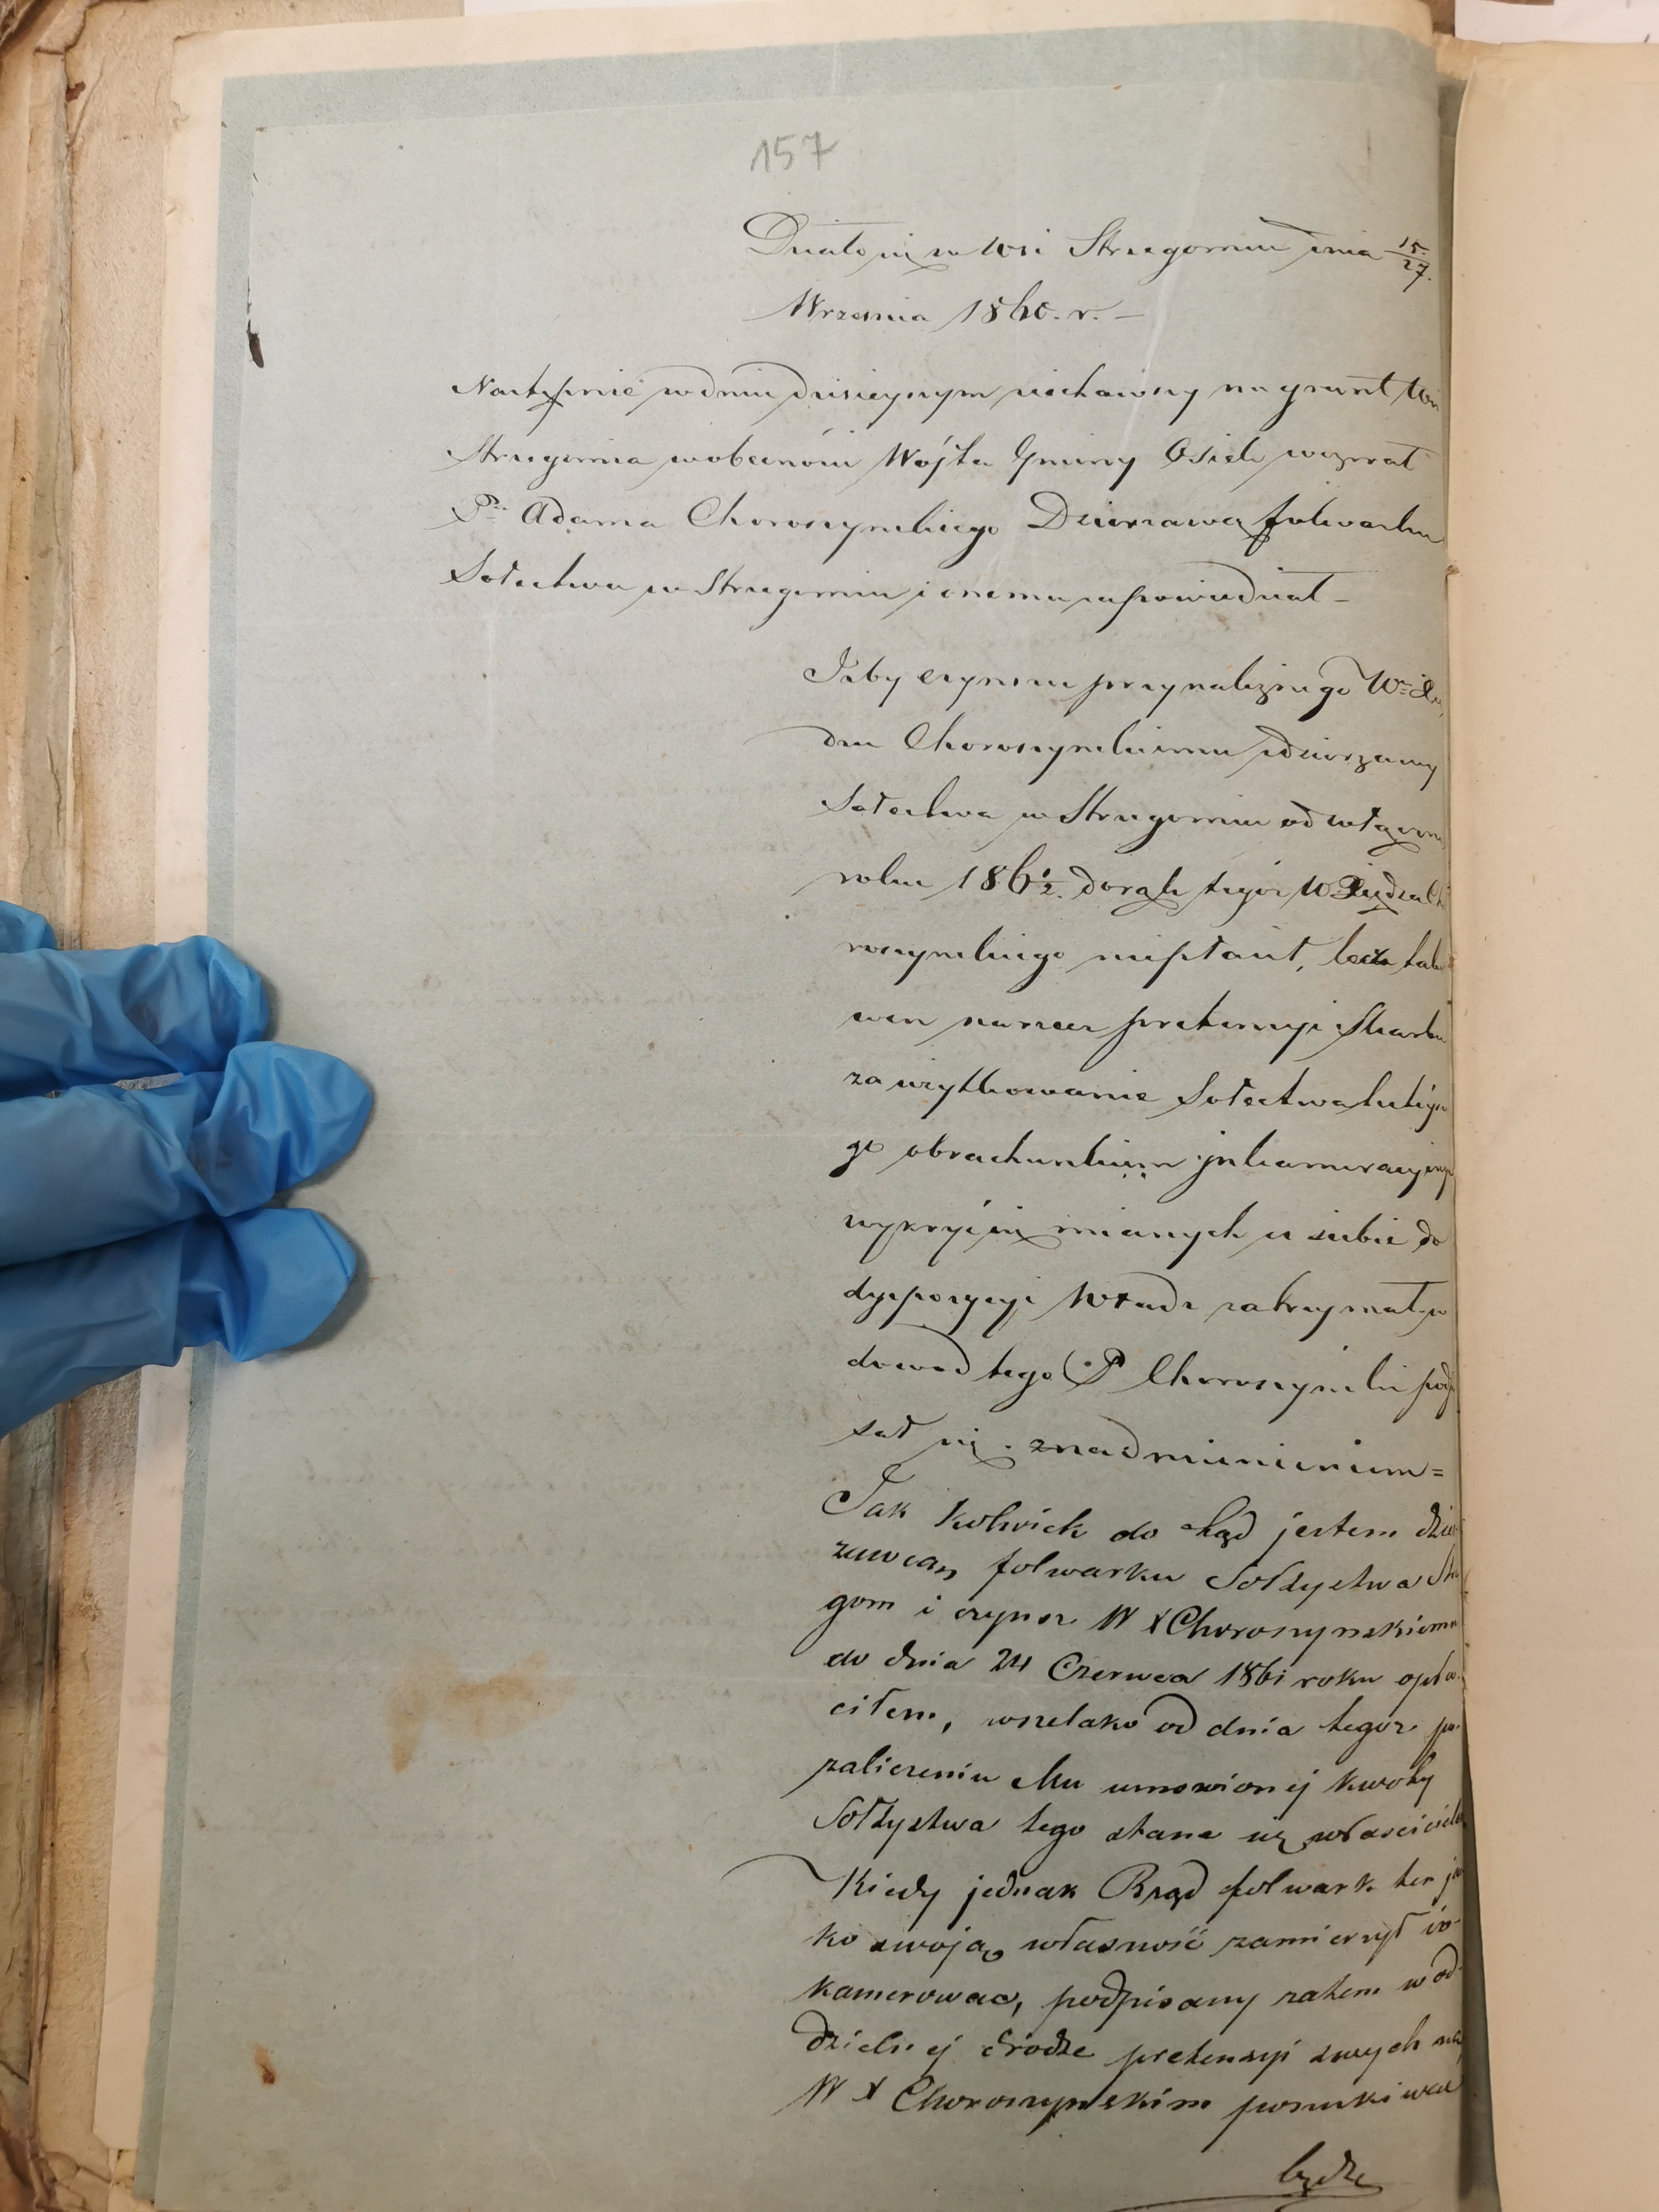 157
Działo się we Wsi Strzegomiu dnia 15/27
Września 1860. r. –
Następnie w dniu dzisieyszym ziechawszy na grunt Wsi
Strzegomia w obecności Wójta Gminy Osiek wezwał
P. Adama Choroszyńskiego Dzierżawcę folwarku
Sołectwa w Strzegomiu i onemu zapowiedział –
Iżby czynszu przynależnego W
Choroszyńskiemu z dzierżawy
Sołectwa w Strzegomiu od
roku 186½ do rąk tegoż W Xiędza Cho
roszyńskiego niepłacił, lecz takowy
na rzecz pretensyi Skarbu
za użytkowanie Sołectwa
go obrachunkiem inkameracyinym
wykryć się mianych u siebie do
dyspozycyi Władz zatrzymał w
dowód tego P Choroszyński podpi
sał się z nadmienieniem =
Jak kolwiek do tąd jestem dzier
zawcą folwarku Sołtystwa Strze
gom i czynsz W X Choroszynskiemu
do dnia 24 Czerwca 1861 roku opła-
ciłem, wszelako od dnia tegoz po
zaliczeniu Mu umowionej kwoty
Sołtystwa tego stane się własciciele
Kiedy jednak Rząd folwark ten ja
ko swoją własność zamierzył in-
kamerowac, podpisany zatem w od-
dzielnej drodze pretensyi swych na
W X Choroszynskim poszukiwac
będzie